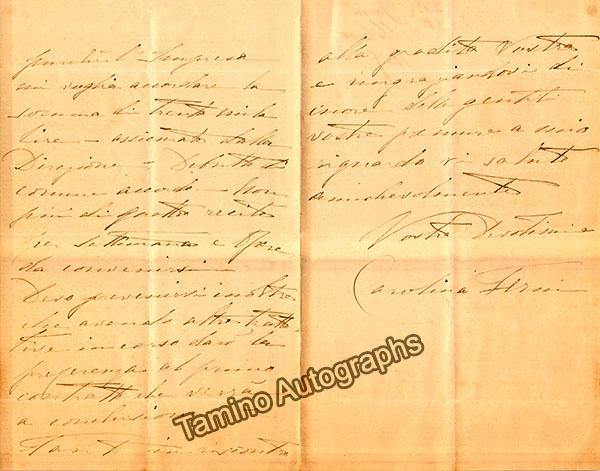 purchè l'Impresa
mi voglia accordare la
somma di trenta mila
lire – assicurate dalla
Direzione – Debutto di
comune accordo – Non
più di quattro recite
per settimana e Opere
da convenirsi –
Devo prevenirvi inoltre
che avendo altre tratta
tive in corso darò la
preferenza al primo
contratto che verrà
a conclusione
Tanto in riscontro
alla gradita Vostra
e ringraziandovi di
cuore della gentili
vostre premure a mio
riguardo vi saluto
amichevolmente
Vostra Devotissima
Carolina Ferni
Tamino Autographs